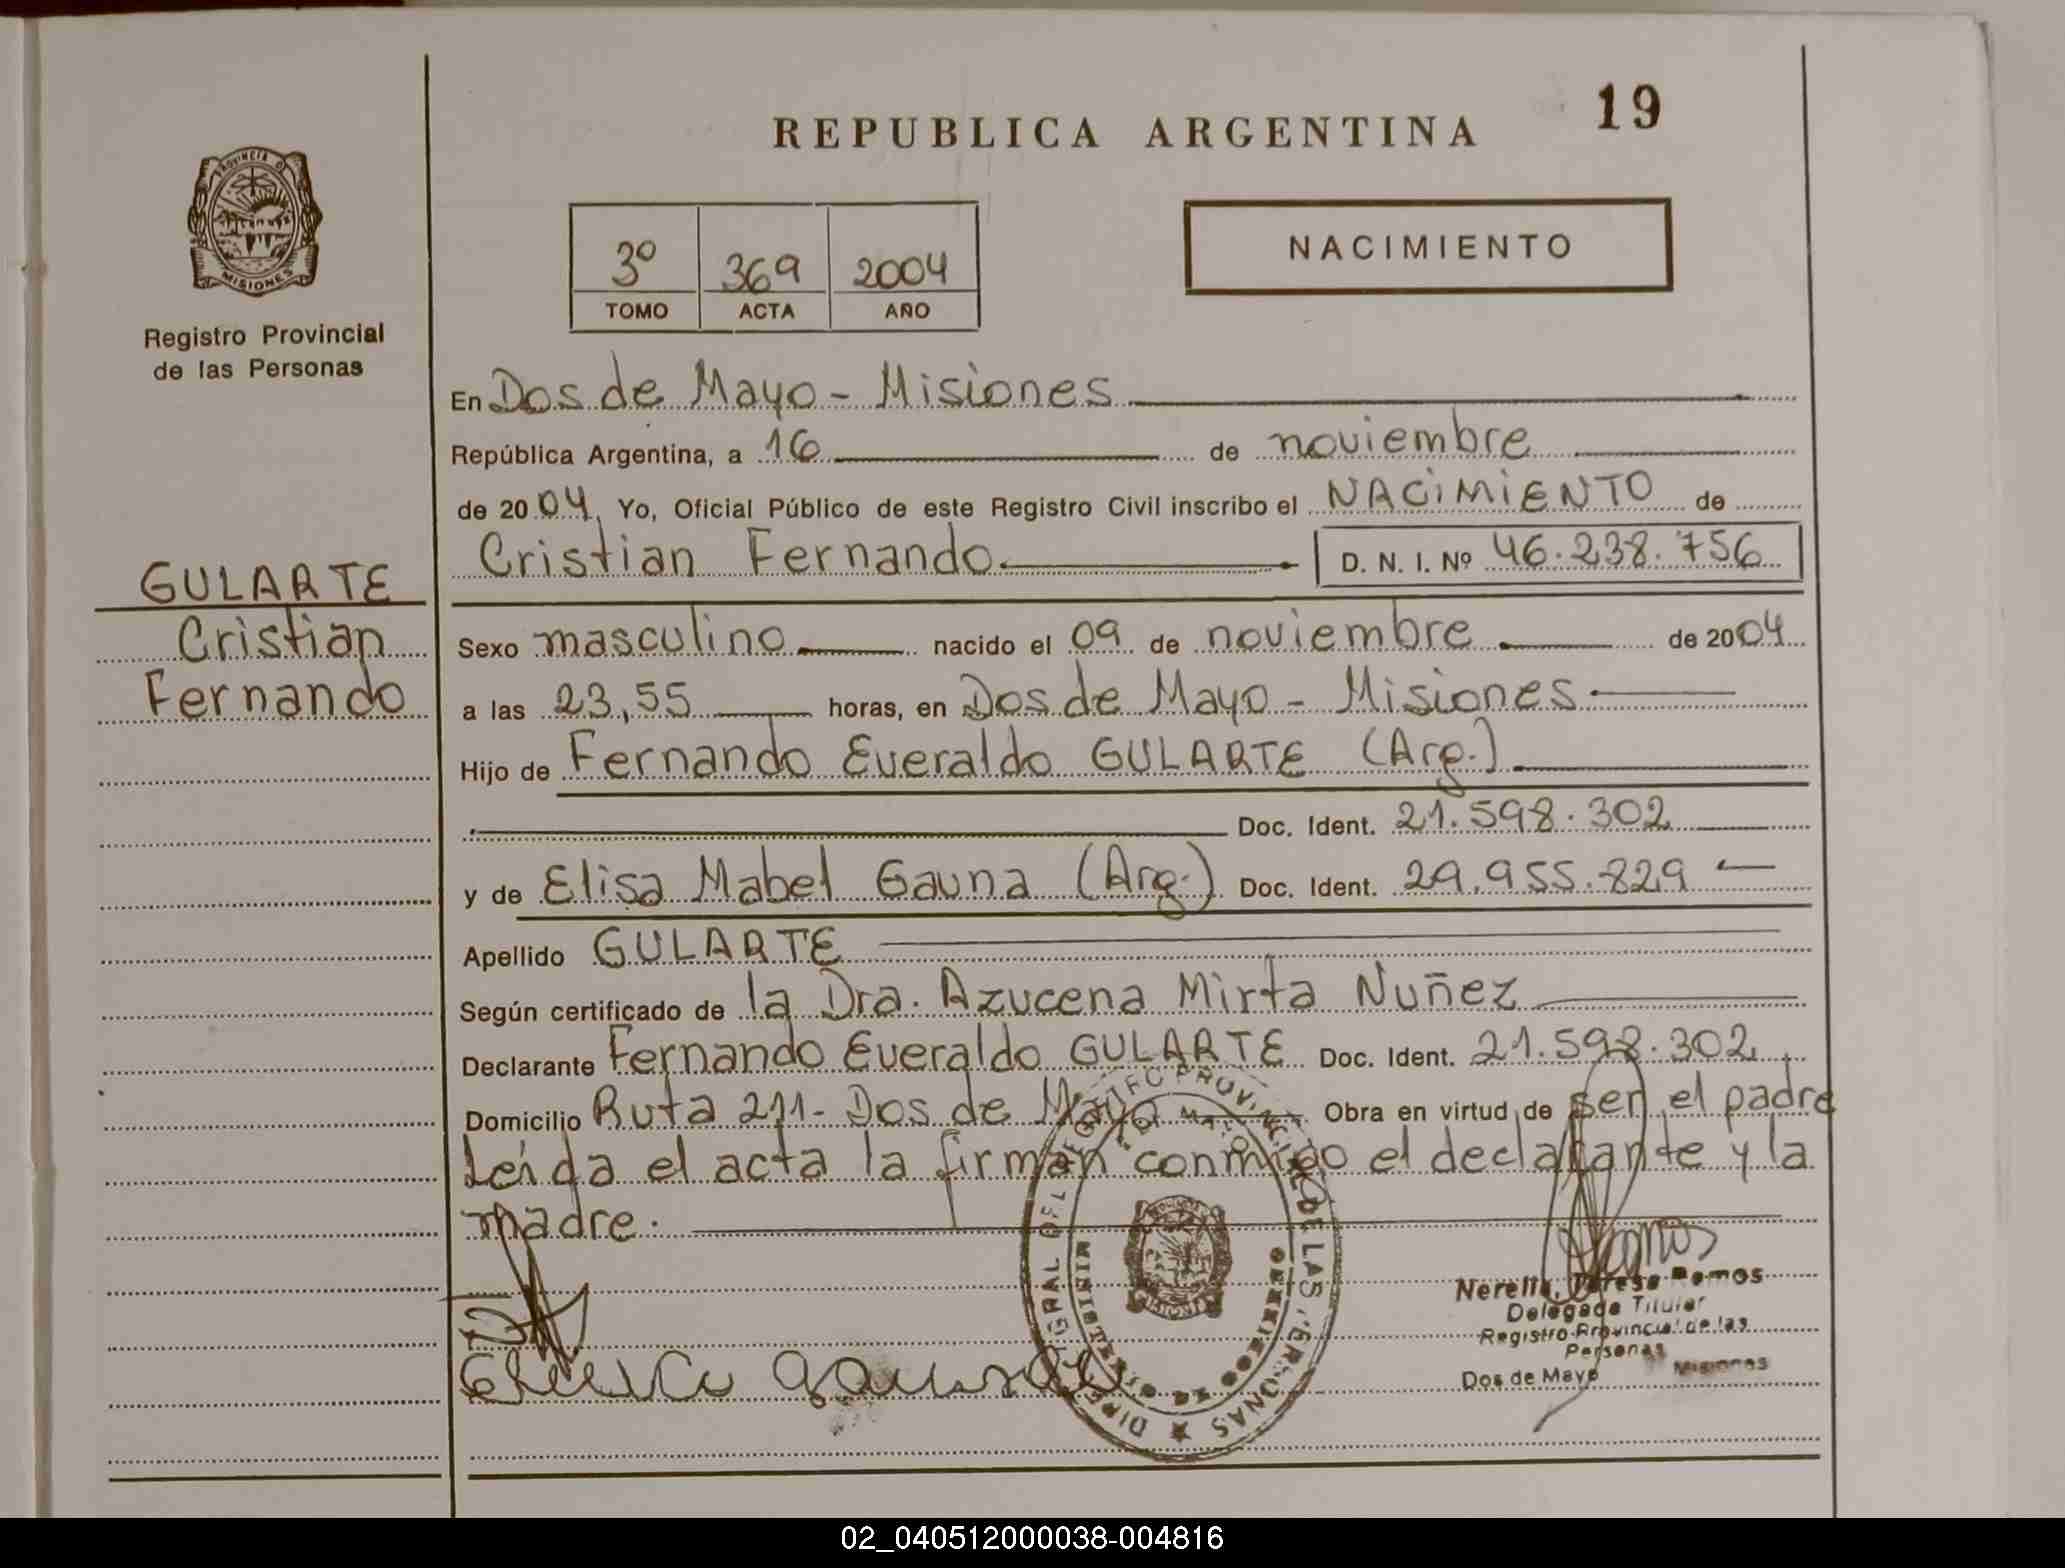 REPUBLICA ARGENTINA 19
PROVINCIA DE
MISIONES
Registro Provincial
de las Personas
3º 369 2004
TOMO ACTA AÑO
NACIMIENTO
En Dos de Mayo - Misiones
República Argentina, a 16 de noviembre
de 2004, Yo, Oficial Público de este Registro Civil inscribo el NACIMIENTO de
Cristian Fernando D. N. I. Nº 46.238.756
GULARTE
Cristian
Fernando
Sexo masculino nacido el 09 de noviembre de 2004
a las 23,55 horas, en Dos de Mayo - Misiones
Hijo de Fernando Everaldo GULARTE (Arg.)
Doc. Ident. 21.598.302
y de Elisa Mabel Gauna (Arg.) Doc. Ident. 29.955.829
Apellido GULARTE
Según certificado de la Dra. Azucena Mirta Nuñez
Declarante Fernando Everaldo GULARTE Doc. Ident. 21.598.302
Domicilio Ruta 211- Dos de Mayo Obra en virtud de ser el padre
Leída el acta la firman conmigo el declarante y la
madre.
Ramos
Nerelia Teresa Ramos
Delegada Titular
Registro Provincial de las
Personas
Dos de Mayo Misiones
02_040512000038-004816